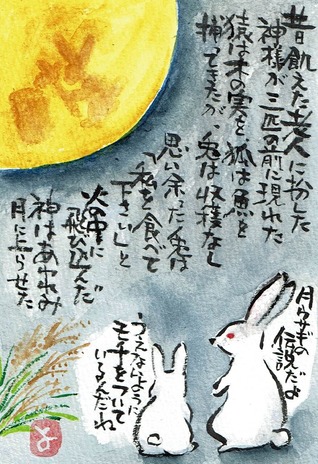 昔飢えた老人に扮した
神様が三匹の前に現れた
猿は木の実を狐は魚を
捕ってきたが、兎は収穫なし
思い余った兎は
「私を食べて
下さい」と
火の中に
飛び込んだ
神はあわれみ
月に上らせた
月ウサギの
伝説だよ
うえないように
モチをついて
いるんだね